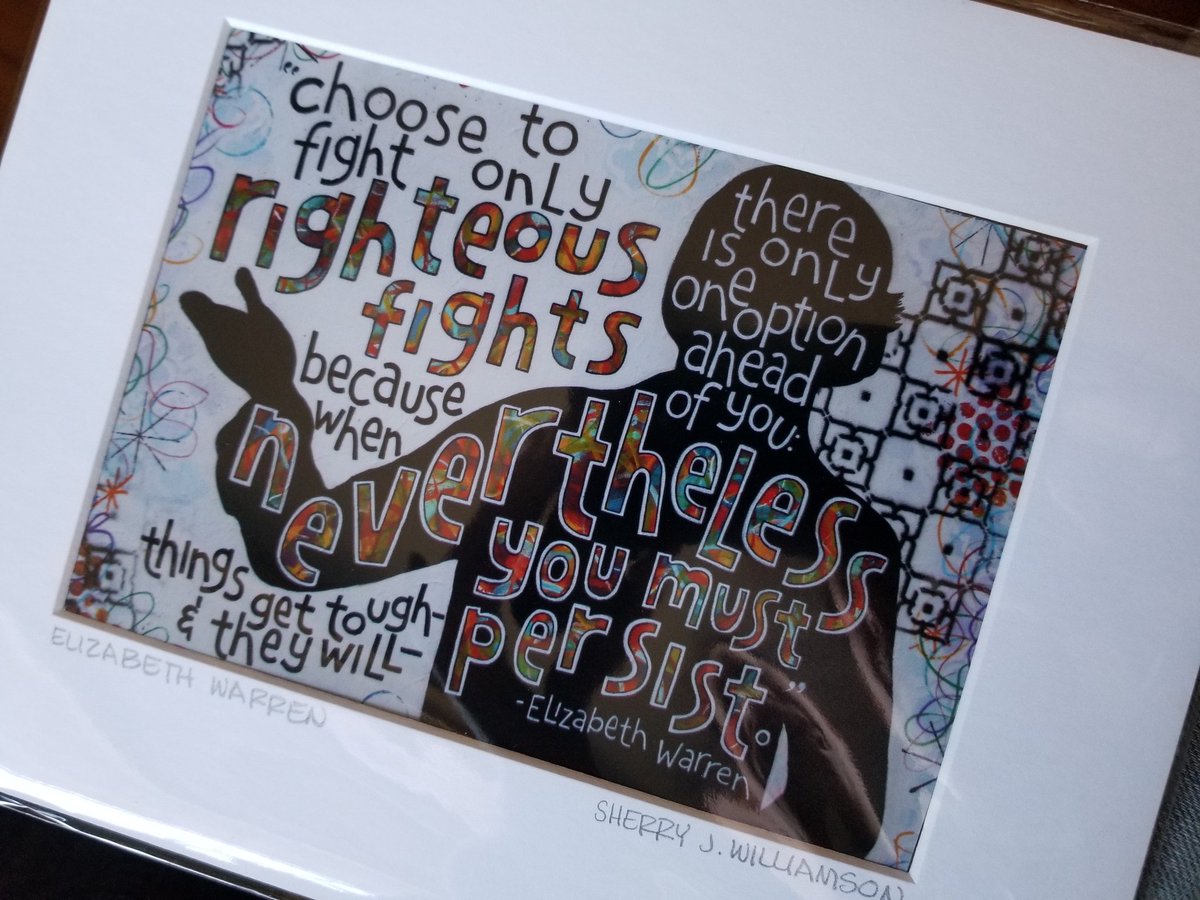 “choose to
fight only
righteous
fights
because
when
things get tough-
& they will-
there
is only
one
option
ahead
of you:
nevertheless
you must
persist.”
-Elizabeth Warren
ELIZABETH WARREN
SHERRY J. WILLIAMSON